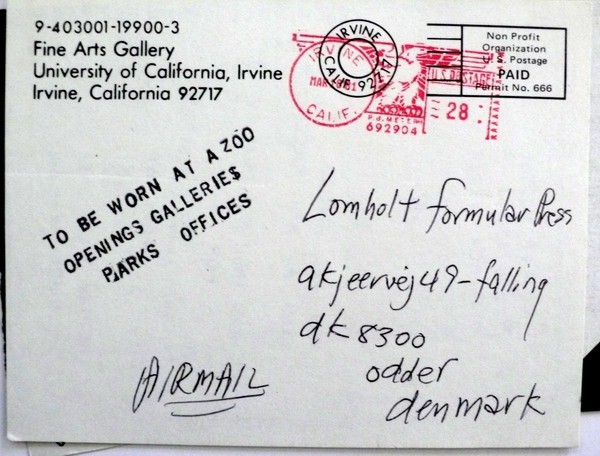 9-403001-19900-3
Fine Arts Gallery
University of California, Irvine
Irvine, California 92717
IRVINE
CALIF. 92717
Non Profit
Organization
U. S. Postage
PAID
Permit No. 666
IRVINE
MAR
CALIF.
U.S. POSTAGE
28
P.B. METER
692904
TO BE WORN AT A ZOO
OPENINGS GALLERIES
PARKS OFFICES
Lomholt formular Press
akjeervej 49-falling
dk 8300
odder
denmark
AIRMAIL